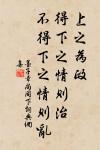 上之為政
得下之情則治
不得下之情則亂
墨子 尚同下詞典網
集